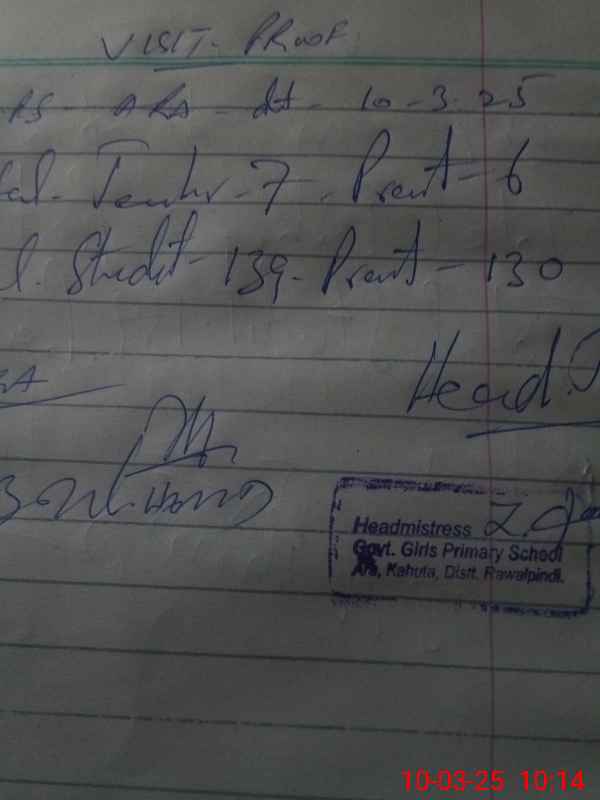 VISIT. PROOF
PS - ARA - dt - 10-3-25
Teacher - 7. Present - 6
Student - 139. Present - 130
Head.
Headmistress
Govt. Girls Primary School
Ara, Kahuta, Distt. Rawalpindi.
10-03-25 10:14